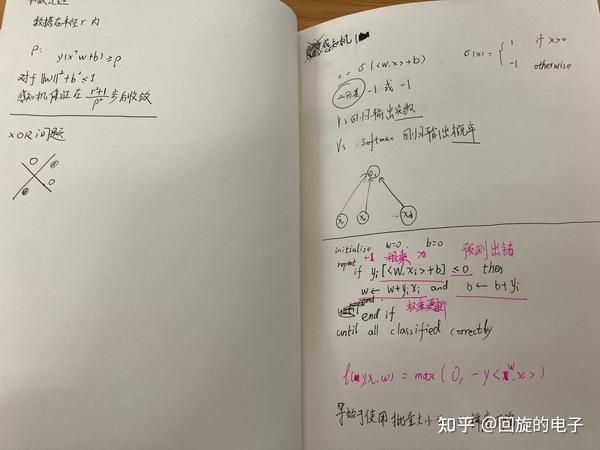 数据在半径 r 内
ρ:
y(xᵀw+b) ≥ρ
对于 ||w||²+b² ≤ 1
感知机保证在 (r²+1)/ρ² 步后收敛
XOR 问题
感知机
o = σ(<w,x>+b)
σ(x) = { 1 if x>0
-1 otherwise
二分类 -1 或 -1
Vs 回归输出实数
Vs. softmax 回归输出概率
o₁
x₁ x₂ ... xd
initialize w=0 . b=0
repeat +1 相乘 预测出错
if yᵢ[<w,xᵢ>+b] ≤ 0 then
w ← w+yᵢxᵢ and b ← b+yᵢ
权重更新
end if
until all classified correctly
l(y,x,w) = max(0, -y<w,x>)
等效于使用批量大小
知乎 @回旋的电子